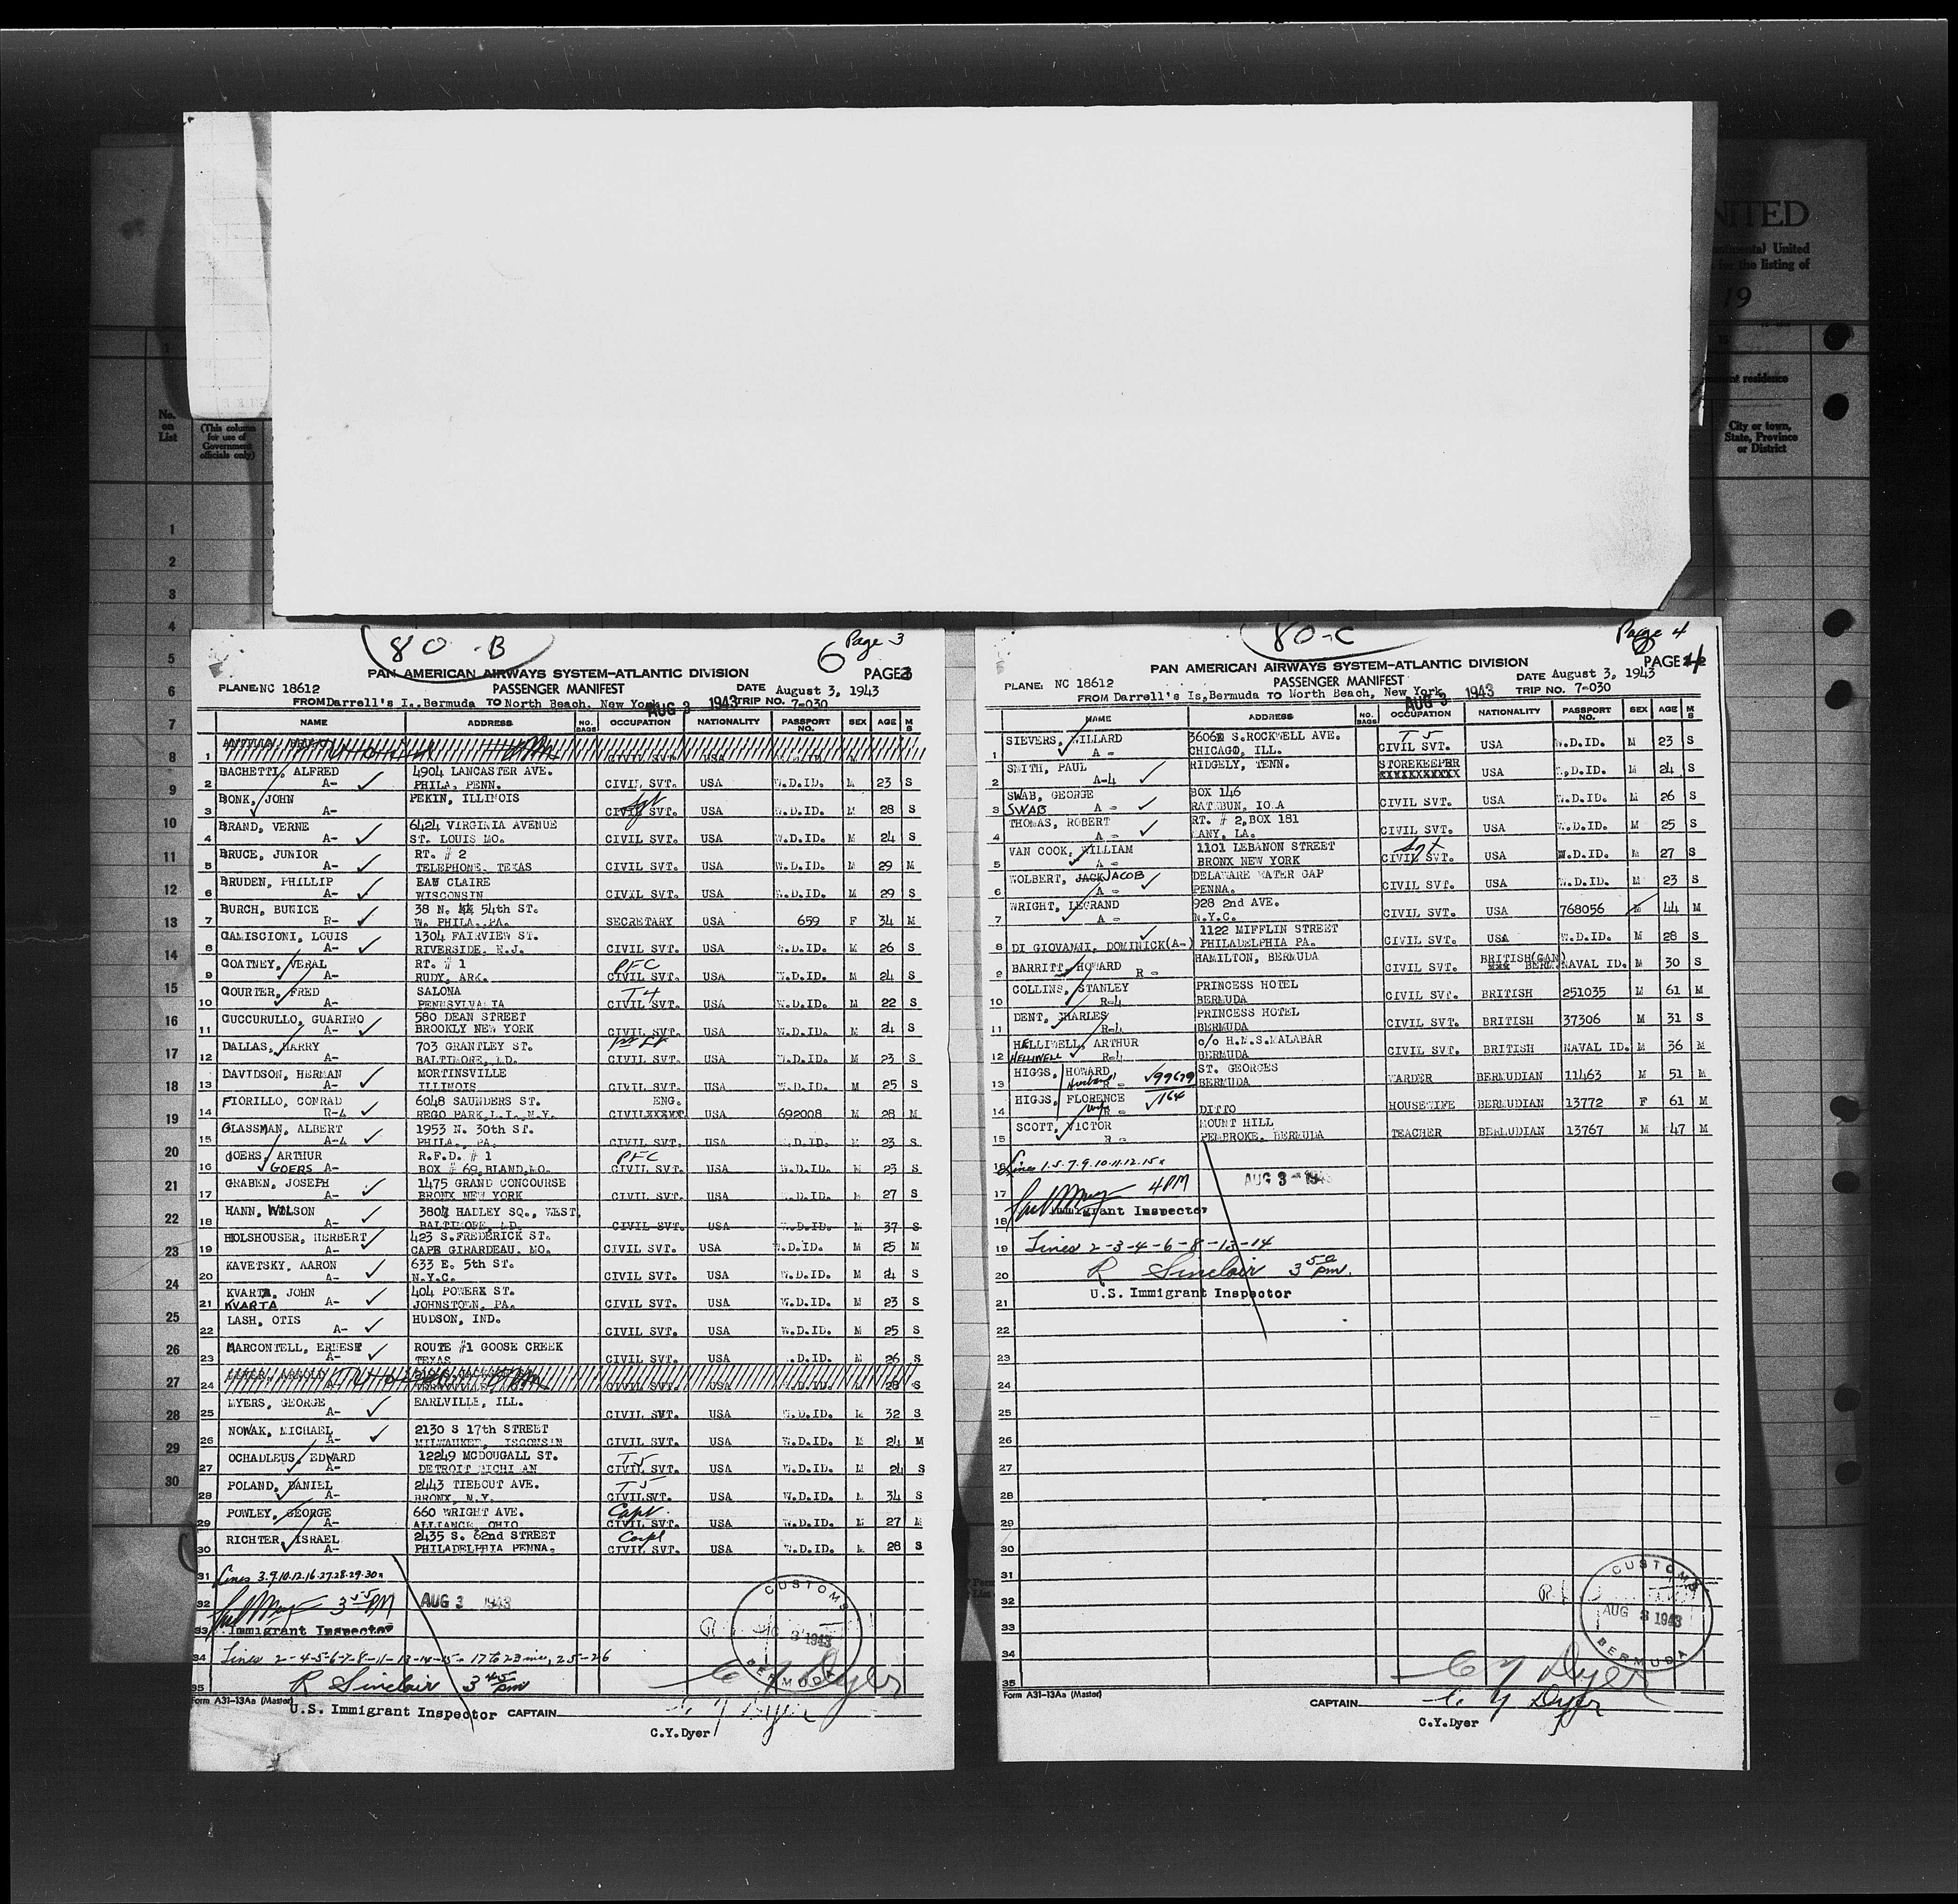 NITED
ontinental United
for the listing of
19
residence
No.
on
List
(This column
for use of
Government
officials only)
City or town,
State, Province
or District
1
2
3
4
5
6
7
8
9
10
11
12
13
14
15
16
17
18
19
20
21
22
23
24
25
26
27
28
29
30
80-B
6 Page 3
PAN AMERICAN AIRWAYS SYSTEM-ATLANTIC DIVISION PAGE 3
PLANE: NC 18612 PASSENGER MANIFEST DATE August 3, 1943
FROM Darrell's I., Bermuda TO North Beach, New York AUG 3 1943 TRIP NO. 7-030
NAME ADDRESS NO. BAGS OCCUPATION NATIONALITY PASSPORT NO. SEX AGE M S
1
BACHETTI, ALFRED 4904 LANCASTER AVE.
2 A- PHILA, PENN. CIVIL SVT. USA W.D.ID. M 23 S
BONK, JOHN PEKIN, ILLINOIS Sgt
3 A- CIVIL SVT. USA W.D.ID. M 28 S
BRAND, VERNE 6424 VIRGINIA AVENUE
4 A- ST. LOUIS MO. CIVIL SVT. USA W.D.ID. M 24 S
BRUCE, JUNIOR RT. # 2
5 A- TELEPHONE, TEXAS CIVIL SVT. USA W.D.ID. M 29 M
BRUDEN, PHILLIP EAU CLAIRE
6 A- WISCONSIN CIVIL SVT. USA W.D.ID. M 29 S
BURCH, BUNICE 38 N. 54th ST.
7 R- W. PHILA., PA. SECRETARY USA 659 F 34 M
CAMISCIONI, LOUIS 1304 FAIRVIEW ST.
8 A- RIVERSIDE, N.J. CIVIL SVT. USA W.D.ID. M 26 S
COATNEY, VERAL RT. # 1 PFC
9 A- RUDY, ARK. CIVIL SVT. USA W.D.ID. M 24 S
COURTER, FRED SALONA T4
10 A- PENNSYLVANIA CIVIL SVT. USA W.D.ID. M 22 S
CUCCURULLO, GUARINO 580 DEAN STREET
11 A- BROOKLY NEW YORK CIVIL SVT. USA W.D.ID. M 24 S
DALLAS, HARRY 703 GRANTLEY ST.
12 A- BALTIMORE, MD. CIVIL SVT. USA W.D.ID. M 23 S
DAVIDSON, HERMAN MORTINSVILLE
13 A- ILLINOIS CIVIL SVT. USA W.D.ID. M 25 S
FIORILLO, CONRAD 6048 SAUNDERS ST. ENG.
14 R-4 REGO PARK, L.I., N.Y. CIVILXXXXX USA 692008 M 28 M
GLASSMAN, ALBERT 1953 N. 30th ST.
15 A-4 PHILA., PA. CIVIL SVT. USA W.D.ID. M 23 S
GOERS, ARTHUR R.F.D. # 1 PFC
16 GOERS A- BOX # 69, BLAND, MO. CIVIL SVT. USA W.D.ID. M 23 S
GRABEN, JOSEPH 1475 GRAND CONCOURSE
17 A- BRONX NEW YORK CIVIL SVT. USA W.D.ID. M 27 S
HANN, WILSON 3807 HADLEY SQ., WEST,
18 A- BALTIMORE, MD. CIVIL SVT. USA W.D.ID. M 37 S
HOLSHOUSER, HERBERT 423 S.FREDERICK ST.
19 A- CAPE GIRARDEAU, MO. CIVIL SVT. USA W.D.ID. M 25 M
KAVETSKY, AARON 633 E. 5th ST.
20 A- N.Y.C. CIVIL SVT. USA W.D.ID. M 24 S
KVARTA, JOHN 404 POWERK ST.
21 KVARTA A- JOHNSTOWN, PA. CIVIL SVT. USA W.D.ID. M 23 S
LASH, OTIS HUDSON, IND.
22 A- CIVIL SVT. USA W.D.ID. M 25 S
MARCONTELL, ERNEST ROUTE #1 GOOSE CREEK
23 A- TEXAS CIVIL SVT. USA W.D.ID. M 26 S
24 CIVIL SVT. USA W.D.ID. M 28 S
MYERS, GEORGE EARLVILLE, ILL.
25 A- CIVIL SVT. USA W.D.ID. M 32 S
NOWAK, MICHAEL 2130 S 17th STREET
26 A- MILWAUKEE, WISCONSIN CIVIL SVT. USA W.D.ID. M 24 M
OCHADLEUS, EDWARD 12249 MCDOUGALL ST. T5
27 A- DETROIT MICHIGAN CIVIL SVT. USA W.D.ID. M 24 S
POLAND, DANIEL 2443 TIEBOUT AVE. T5
28 A- BRONX, N.Y. CIVILSVT. USA W.D.ID. M 34 S
POWLEY, GEORGE 660 WRIGHT AVE. Capt.
29 A- ALLIANCE, OHIO CIVIL SVT. USA W.D.ID. M 27 M
RICHTER, ISRAEL 2435 S. 62nd STREET Corpl
30 A- PHILADELPHIA PENNA. CIVIL SVT. USA W.D.ID. M 28 S
31 Lines 3.9.10.12.16.27.28.29.30x
32 3 55 PM AUG 3 1943
33 Immigrant Inspector
34 Lines 2-4-5-6-7-8-11-13-14-15- 17 to 23 inc, 25-26
35 R Sinclair 3 45 pm
CUSTOMS
AUG 3 1943
BERMUDA
C Y Dyer
Form A31-13Aa (Master)
U.S. Immigrant Inspector CAPTAIN C Y Dyer
C.Y.Dyer
80-C
Page 4
6
PAN AMERICAN AIRWAYS SYSTEM-ATLANTIC DIVISION PAGE 4
PLANE: NC 18612 PASSENGER MANIFEST DATE August 3, 1943
FROM Darrell's Is, Bermuda TO North Beach, New York AUG 3 1943 TRIP NO. 7-030
NAME ADDRESS NO. BAGS OCCUPATION NATIONALITY PASSPORT NO. SEX AGE M S
SIEVERS, WILLARD 3606 S.ROCKWELL AVE. T 5
1 A - CHICAGO, ILL. CIVIL SVT. USA W.D.ID. M 23 S
SMITH, PAUL RIDGELY, TENN. STOREKEEPER
2 A-4 XXXXXXXXXX USA W.D.ID. M 24 S
SWAB, GEORGE BOX 146
3 SWAB A - RATHBUN, IOWA CIVIL SVT. USA W.D.ID. M 26 S
THOMAS, ROBERT RT. # 2, BOX 181
4 A - MANY, LA. CIVIL SVT. USA W.D.ID. M 25 S
VAN COOK, WILLIAM 1101 LEBANON STREET Sgt
5 A - BRONX NEW YORK CIVIL SVT. USA W.D.ID. M 27 S
WOLBERT, JACK JACOB DELAWARE WATER GAP
6 A - PENNA. CIVIL SVT. USA W.D.ID. M 23 S
WRIGHT, LEGRAND 928 2nd AVE.
7 A - N.Y.C. CIVIL SVT. USA 768056 M 44 M
1122 MIFFLIN STREET
8 DI GIOVANNI, DOMINICK(A-) PHILADELPHIA PA. CIVIL SVT. USA W.D.ID. M 28 S
BARRITT, HOWARD HAMILTON, BERMUDA BRITISH(CAN)
9 R - CIVIL SVT. XXX BERM. NAVAL ID. M 30 S
COLLINS, STANLEY PRINCESS HOTEL
10 R-4 BERMUDA CIVIL SVT. BRITISH 251035 M 61 M
DENT, CHARLES PRINCESS HOTEL
11 R-4 BERMUDA CIVIL SVT. BRITISH 37306 M 31 S
HELLIWELL, ARTHUR c/o H.M.S.MALABAR
12 HELLIWELL R-4 BERMUDA CIVIL SVT. BRITISH NAVAL ID. M 36 M
HIGGS, HOWARD ST. GEORGES
13 Husband R - √99679 BERMUDA WARDER BERMUDIAN 11463 M 51 M
HIGGS, FLORENCE √164
14 wife R - DITTO HOUSEWIFE BERMUDIAN 13772 F 61 M
SCOTT, VICTOR MOUNT HILL
15 R - PEMBROKE, BERMUDA TEACHER BERMUDIAN 13767 M 47 M
16 Lines 1.5.7.9.10.11.12.15x
17 4PM AUG 3 - 1943
18 Immigrant Inspector
19 Lines 2-3-4-6-8-13-14
20 R Sinclair 3 50 pm.
21 U.S. Immigrant Inspector
22
23
24
25
26
27
28
29
30
31
32
33
34
35
CUSTOMS
AUG 3 1943
BERMUDA
C Y Dyer
Form A31-13Aa (Master)
CAPTAIN C. Y Dyer
C.Y.Dyer